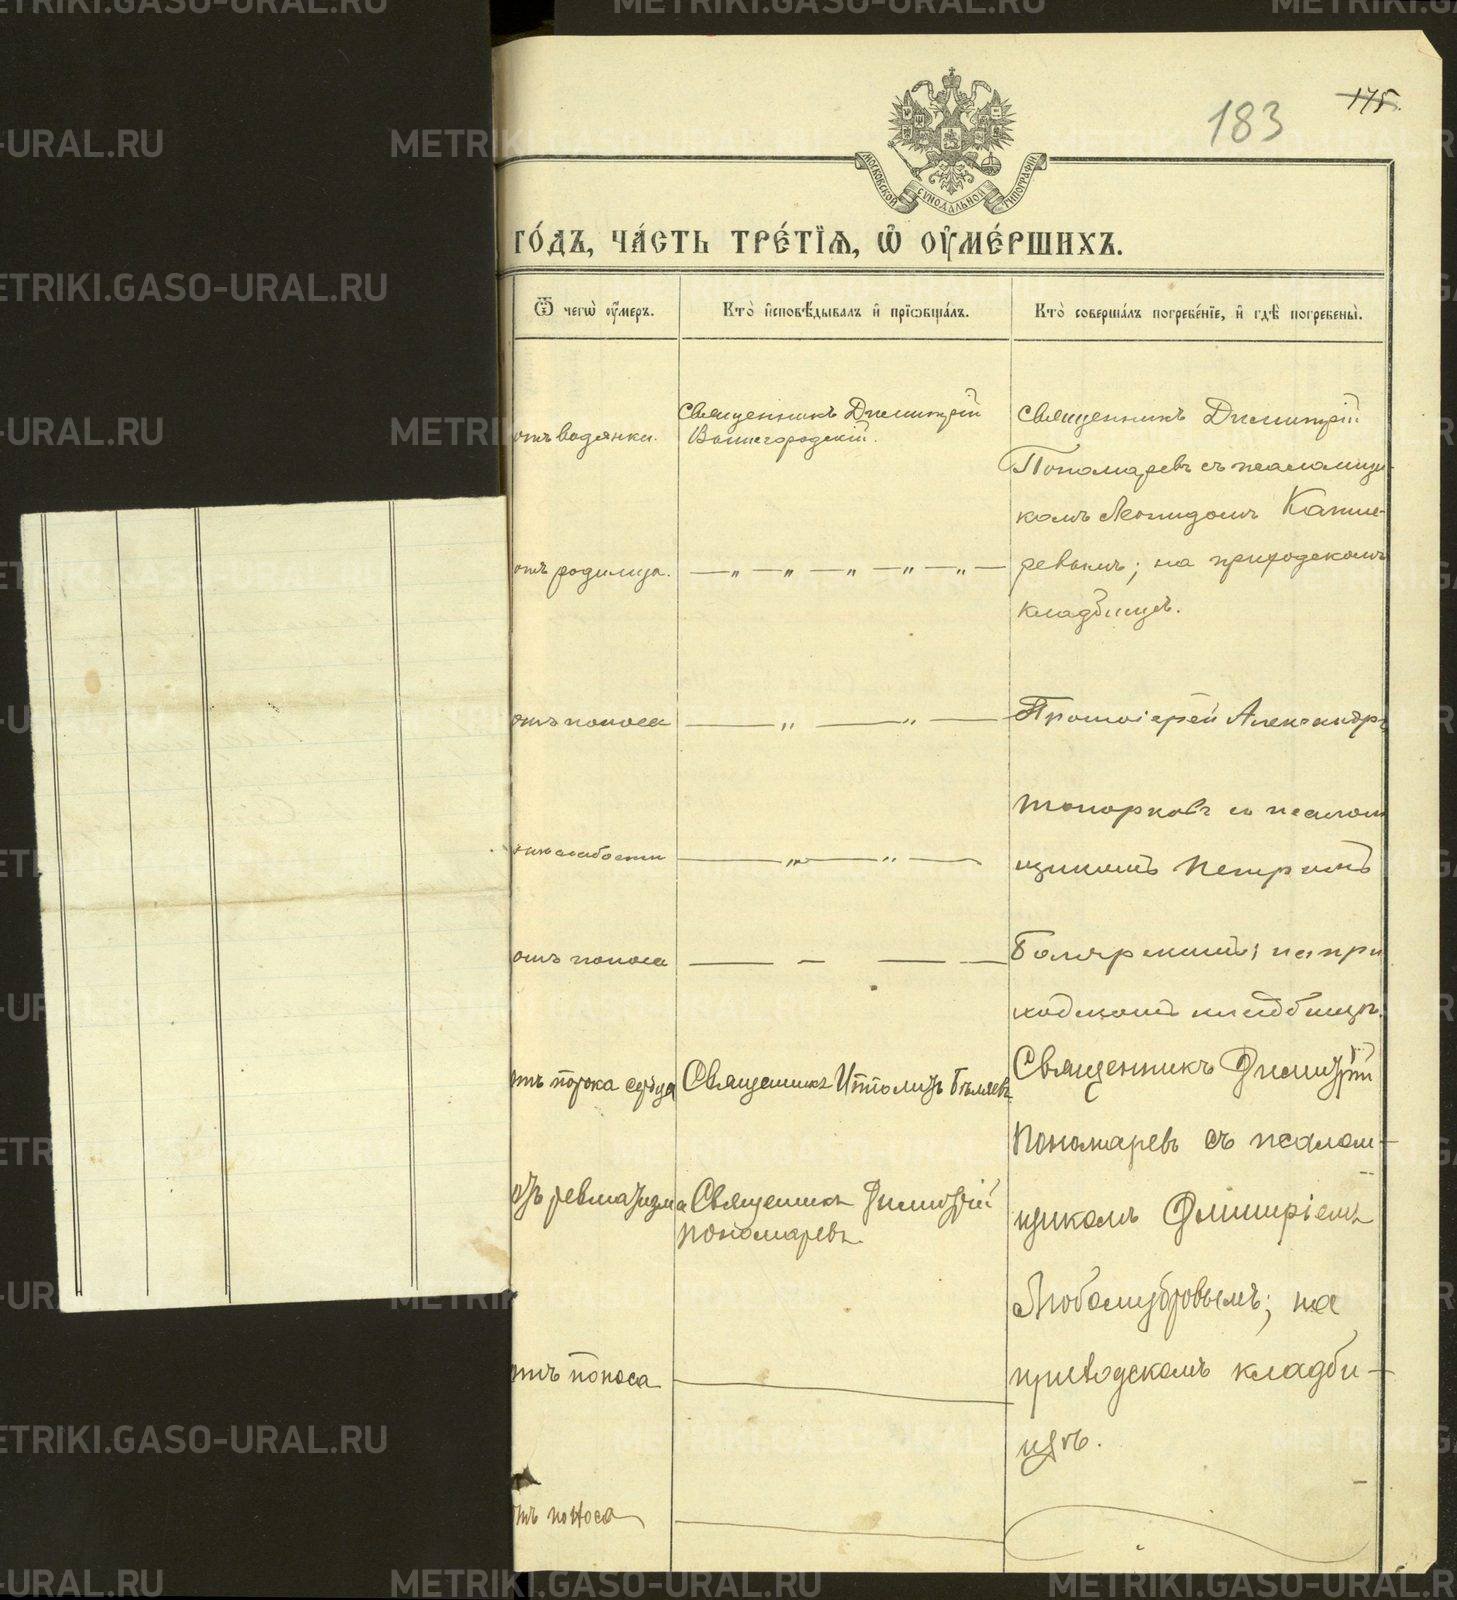 183
175.
МОСКОВСКОЙ СѴНОДАЛЬНОЙ ТИПОГРАФІИ
ГО́ДЪ, ЧА́СТЬ ТРЕ́ТІѦ, Ѡ҆ ОУ҆МЕ́РШИХЪ.
Ѿ чегѡ̀ оу҆́меръ.
Кто̀ и҆сповѣ́дывалъ и҆ прїѡбща́лъ.
Кто̀ соверша́лъ погребе́нїе, и҆ гдѣ̀ погребены̀.
отъ водянки.
Священникъ Димитрій
Вышегородскій.
Священникъ Димитрій
Пономаревъ съ псаломщи-
комъ Леонидомъ
ревымъ; на приходскомъ
кладбищѣ.
отъ родимца.
— „ — „ — „ — „ — „ —
отъ поноса
— „ — „ —
Протоіерей Александръ
Топорковъ съ псалом
щикомъ Петромъ
Боляркинымъ; на при
ходскомъ кладбищѣ.
слабости
— „ — „ —
отъ поноса
— — — —
отъ порока сердца
Священникъ Ипполитъ Бѣляевъ
Священникъ Димитрій
Пономаревъ съ псалом-
щикомъ Димитріемъ
Любомудровымъ; на
приходскомъ кладби-
щѣ.
отъ ревматизма
Священникъ Димитрій
Пономаревъ.
отъ поноса
отъ поноса
METRIKI.GASO-URAL.RU